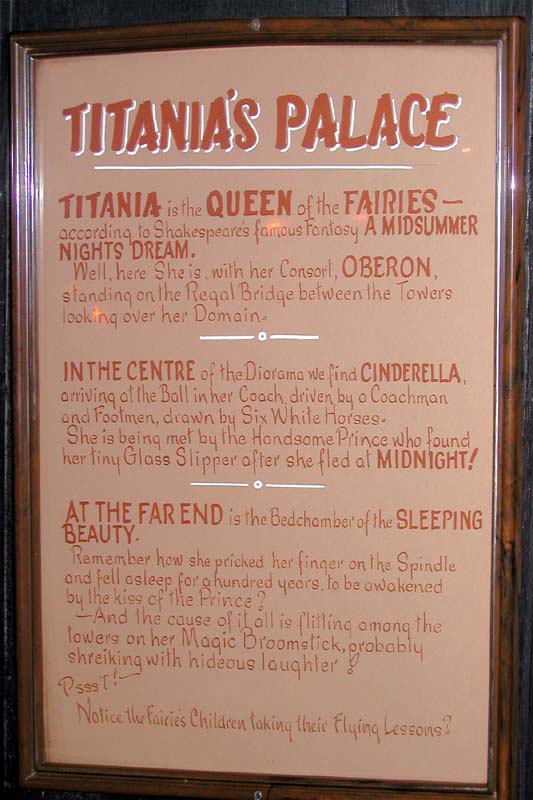 TITANIA'S PALACE
TITANIA is the QUEEN of the FAIRIES —
according to Shakespeare's famous Fantasy A MIDSUMMER
NIGHTS DREAM.
Well, here She is, with her Consort, OBERON,
standing on the Regal Bridge between the Towers
looking over her Domain.
IN THE CENTRE of the Diorama we find CINDERELLA,
arriving at the Ball in her Coach, driven by a Coachman
and Footmen, drawn by Six White Horses.
She is being met by the Handsome Prince who found
her tiny Glass Slipper after she fled at MIDNIGHT!
AT THE FAR END is the Bedchamber of the SLEEPING
BEAUTY.
Remember how she pricked her finger on the Spindle
and fell asleep for a hundred years, to be awakened
by the kiss of the Prince?
—And the cause of it all is flitting among the
towers on her Magic Broomstick, probably
shreiking with hideous laughter!
Psss't!—
Notice the Fairie's Children taking their Flying Lessons?